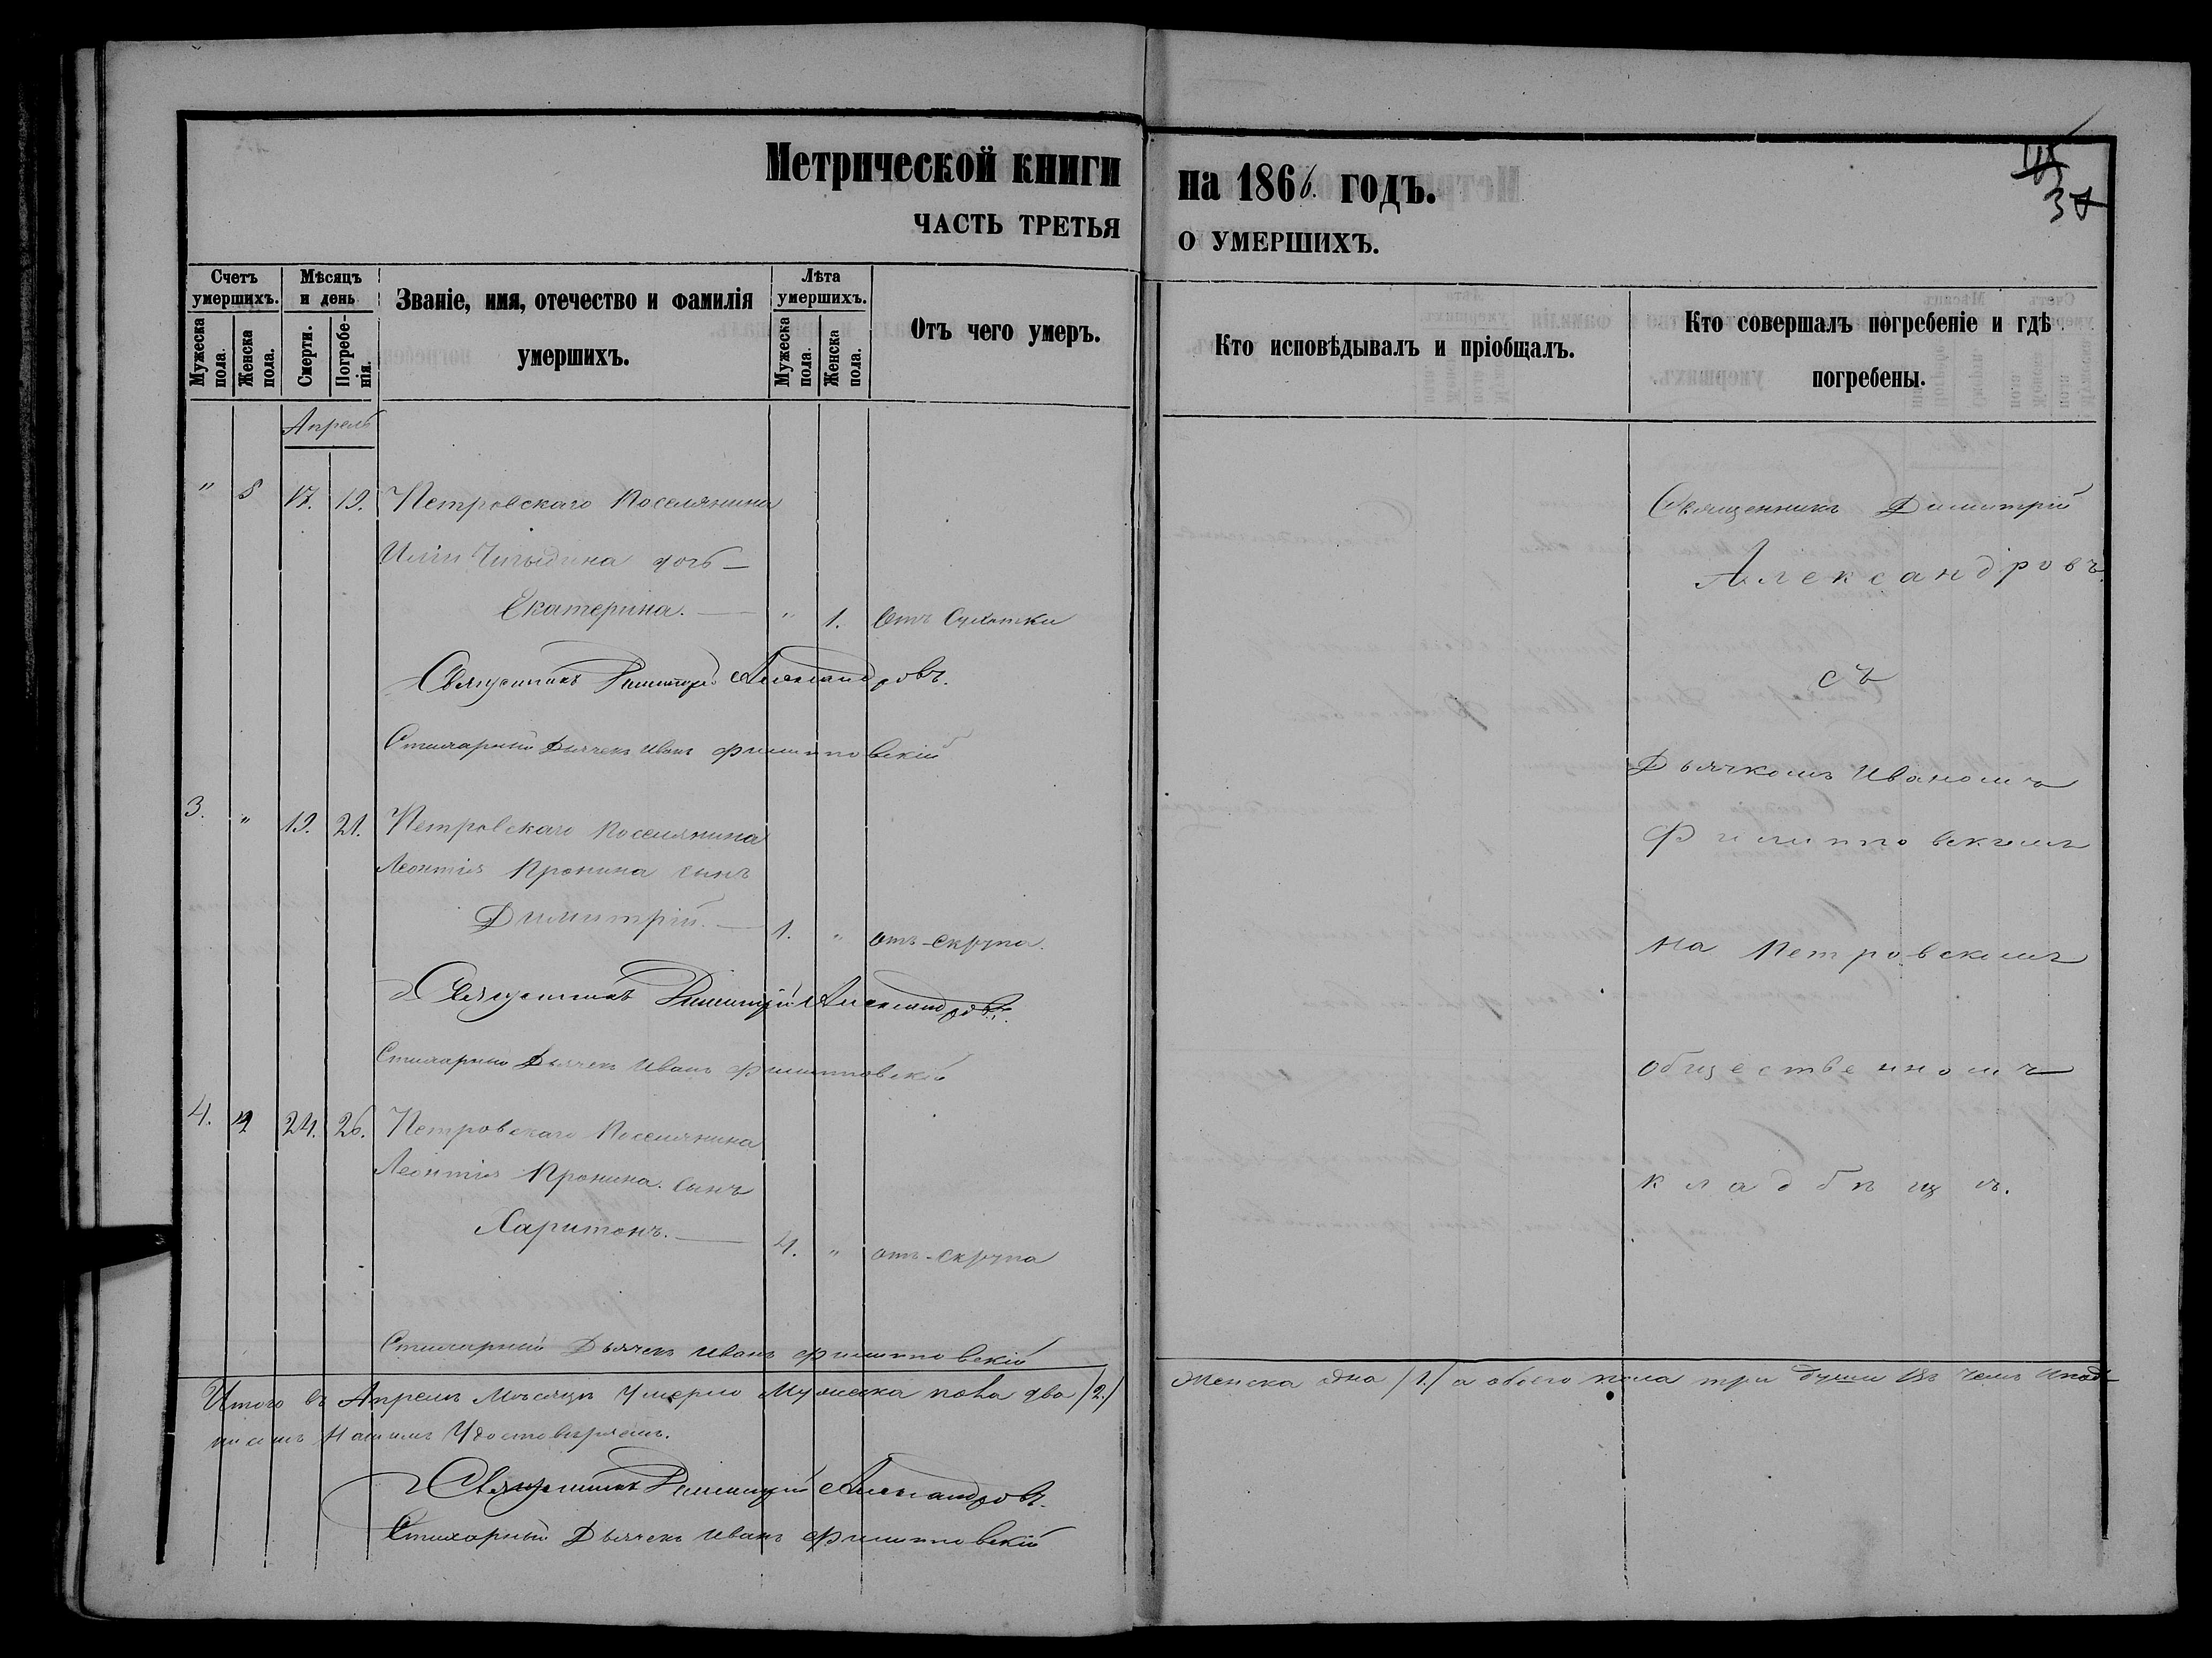 Метрической книги
ЧАСТЬ ТРЕТЬЯ
Счетъ умершихъ.
Мужеска пола.
Женска пола.
Мѣсяцъ и день
Смерти.
Погребенія.
Званіе, имя, отечество и фамилія
умершихъ.
Лѣта умершихъ.
Мужеска пола.
Женска пола.
Отъ чего умеръ.
Апрель
" 8 17. 19. Петровскаго Поселянина
Иліи дочь —
Екатерина. — " 1. Отъ Сухотки
Священникъ Димитрій Александровъ.
Стихарный Дьячекъ Иванъ Филипповскій
3. " 19. 21. Петровскаго Поселянина
Леонтія Пронина сынъ
Димитрій. — 1. " отъ скрупа.
Священникъ Димитрій Александровъ.
Стихарный Дьячекъ Иванъ Филипповскій
4. " 24. 26. Петровскаго Поселянина
Леонтія Пронина сынъ
Харитонъ. — 4. " отъ скрупа
Стихарный Дьячекъ Иванъ Филипповскій
Итого въ Апрелѣ Мѣсяцѣ Умерло Мужеска пола два /2./
писомъ Нашимъ Удостовѣряемъ.
Священникъ Димитрій Александровъ.
Стихарный Дьячекъ Иванъ Филипповскій
на 1866. годъ.
О УМЕРШИХЪ.
Кто исповѣдывалъ и пріобщалъ.
Кто совершалъ погребеніе и гдѣ
погребены.
Священникъ Димитрій
Александровъ
съ
Дьячкомъ Иваномъ
Филипповскимъ
на Петровскомъ
общественномъ
кладбищѣ.
Женска одна /1./ а обоего пола три души Въ чемъ и под-